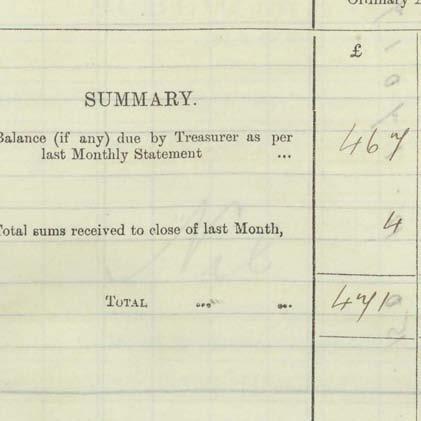 £
SUMMARY.
Balance (if any) due by Treasurer as per
last Monthly Statement ... 467
Total sums received to close of last Month, 4
TOTAL ... ... 471